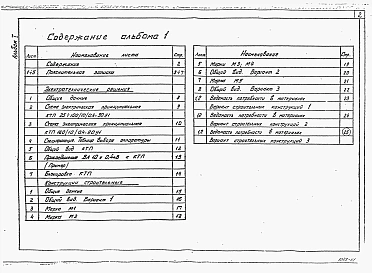 2
Альбом I
Содержание альбома 1
Лист Наименование листа Стр.
Содержание 2
1÷5 Пояснительная записка 3÷7
Электротехнические решения
1 Общие данные 8
2 Схема электрическая принципиальная 9
3 Схема электрическая принципиальная 10
4 аппаратуры 11
5 Общий вид КТП 12
6 ВЛ 10 и 0,4 кВ к КТП 13
(Пример)
7 Блокировка КТП 14
Конструкции строительные
1 Общие данные 15
2 Общий вид. Вариант 1 16
3 Марка М1 17
4 Марка М2 18
Лист Наименование Стр.
5 Марки М3, М4 19
6 Общий вид. Вариант 2 20
7 Марка М5 21
8 Общий вид. Вариант 3 22
Ведомость потребности в материалах 23
Вариант строительных конструкций 1
Ведомость потребности в материалах 24
Вариант строительных конструкций 2
Ведомость потребности в материалах (25)
Вариант строительных конструкций 3